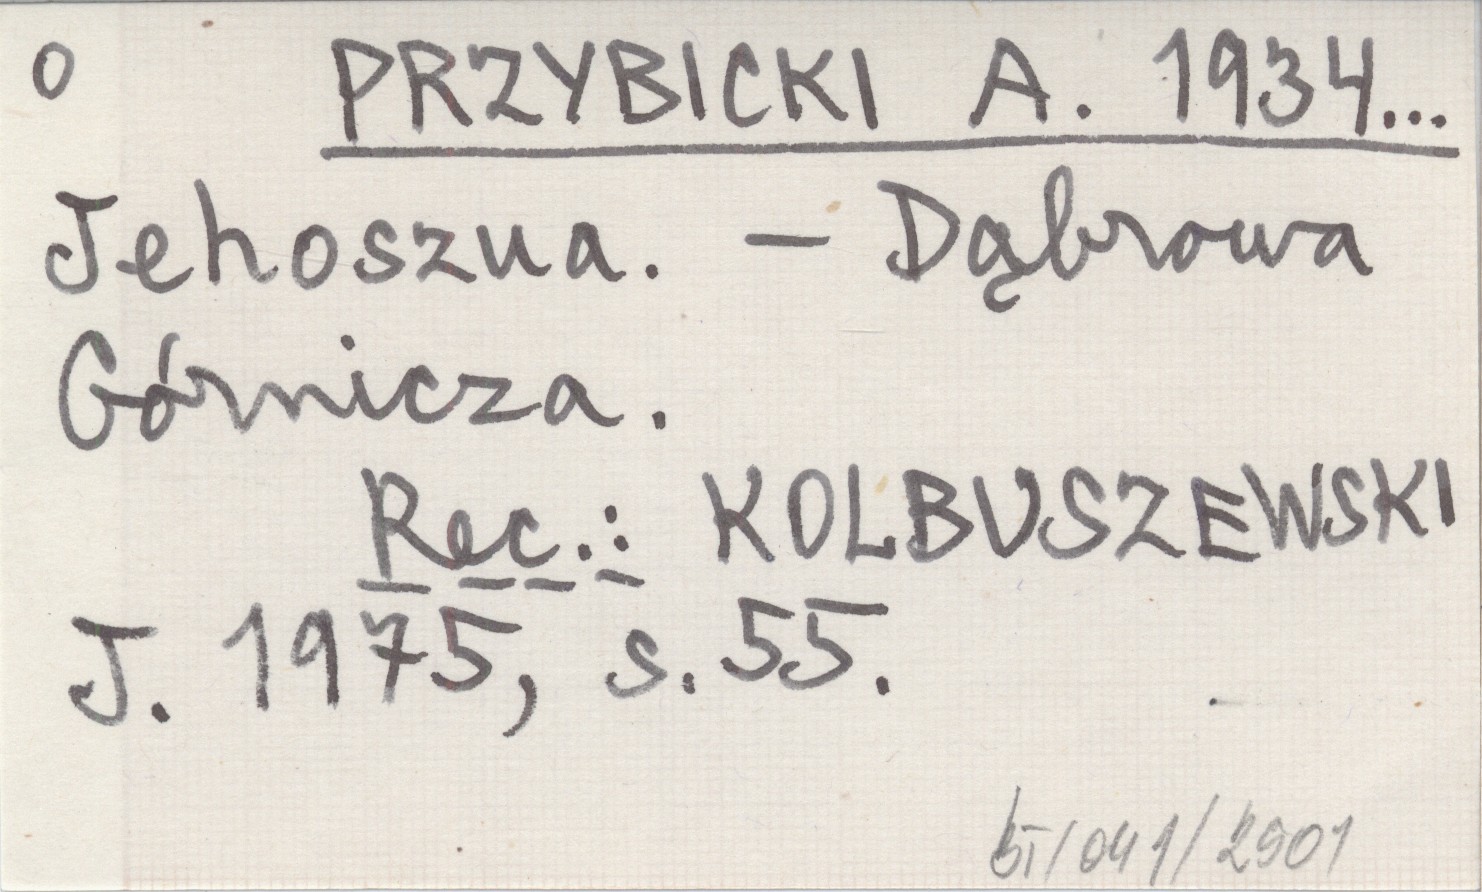 0 PRZYBICKI A. 1934...
Jehoszua. – Dąbrowa
Górnicza.
Rec.: KOLBUSZEWSKI
J. 1975, s. 55.
BI/041/2901